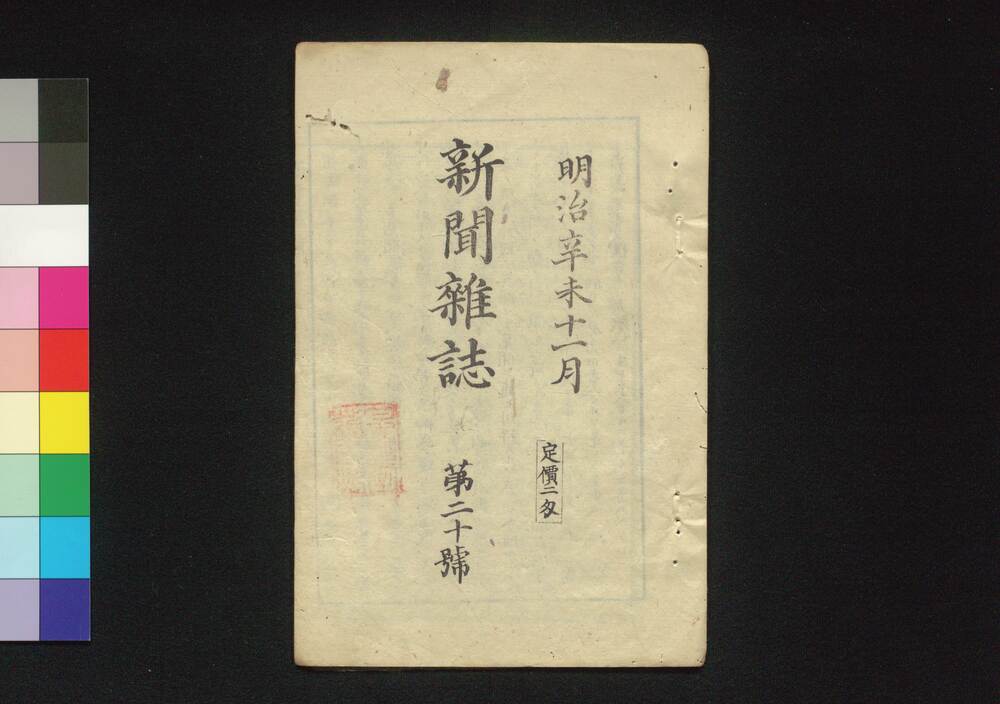 明治辛未十一月
定價二匁
新聞雜誌
第二十號